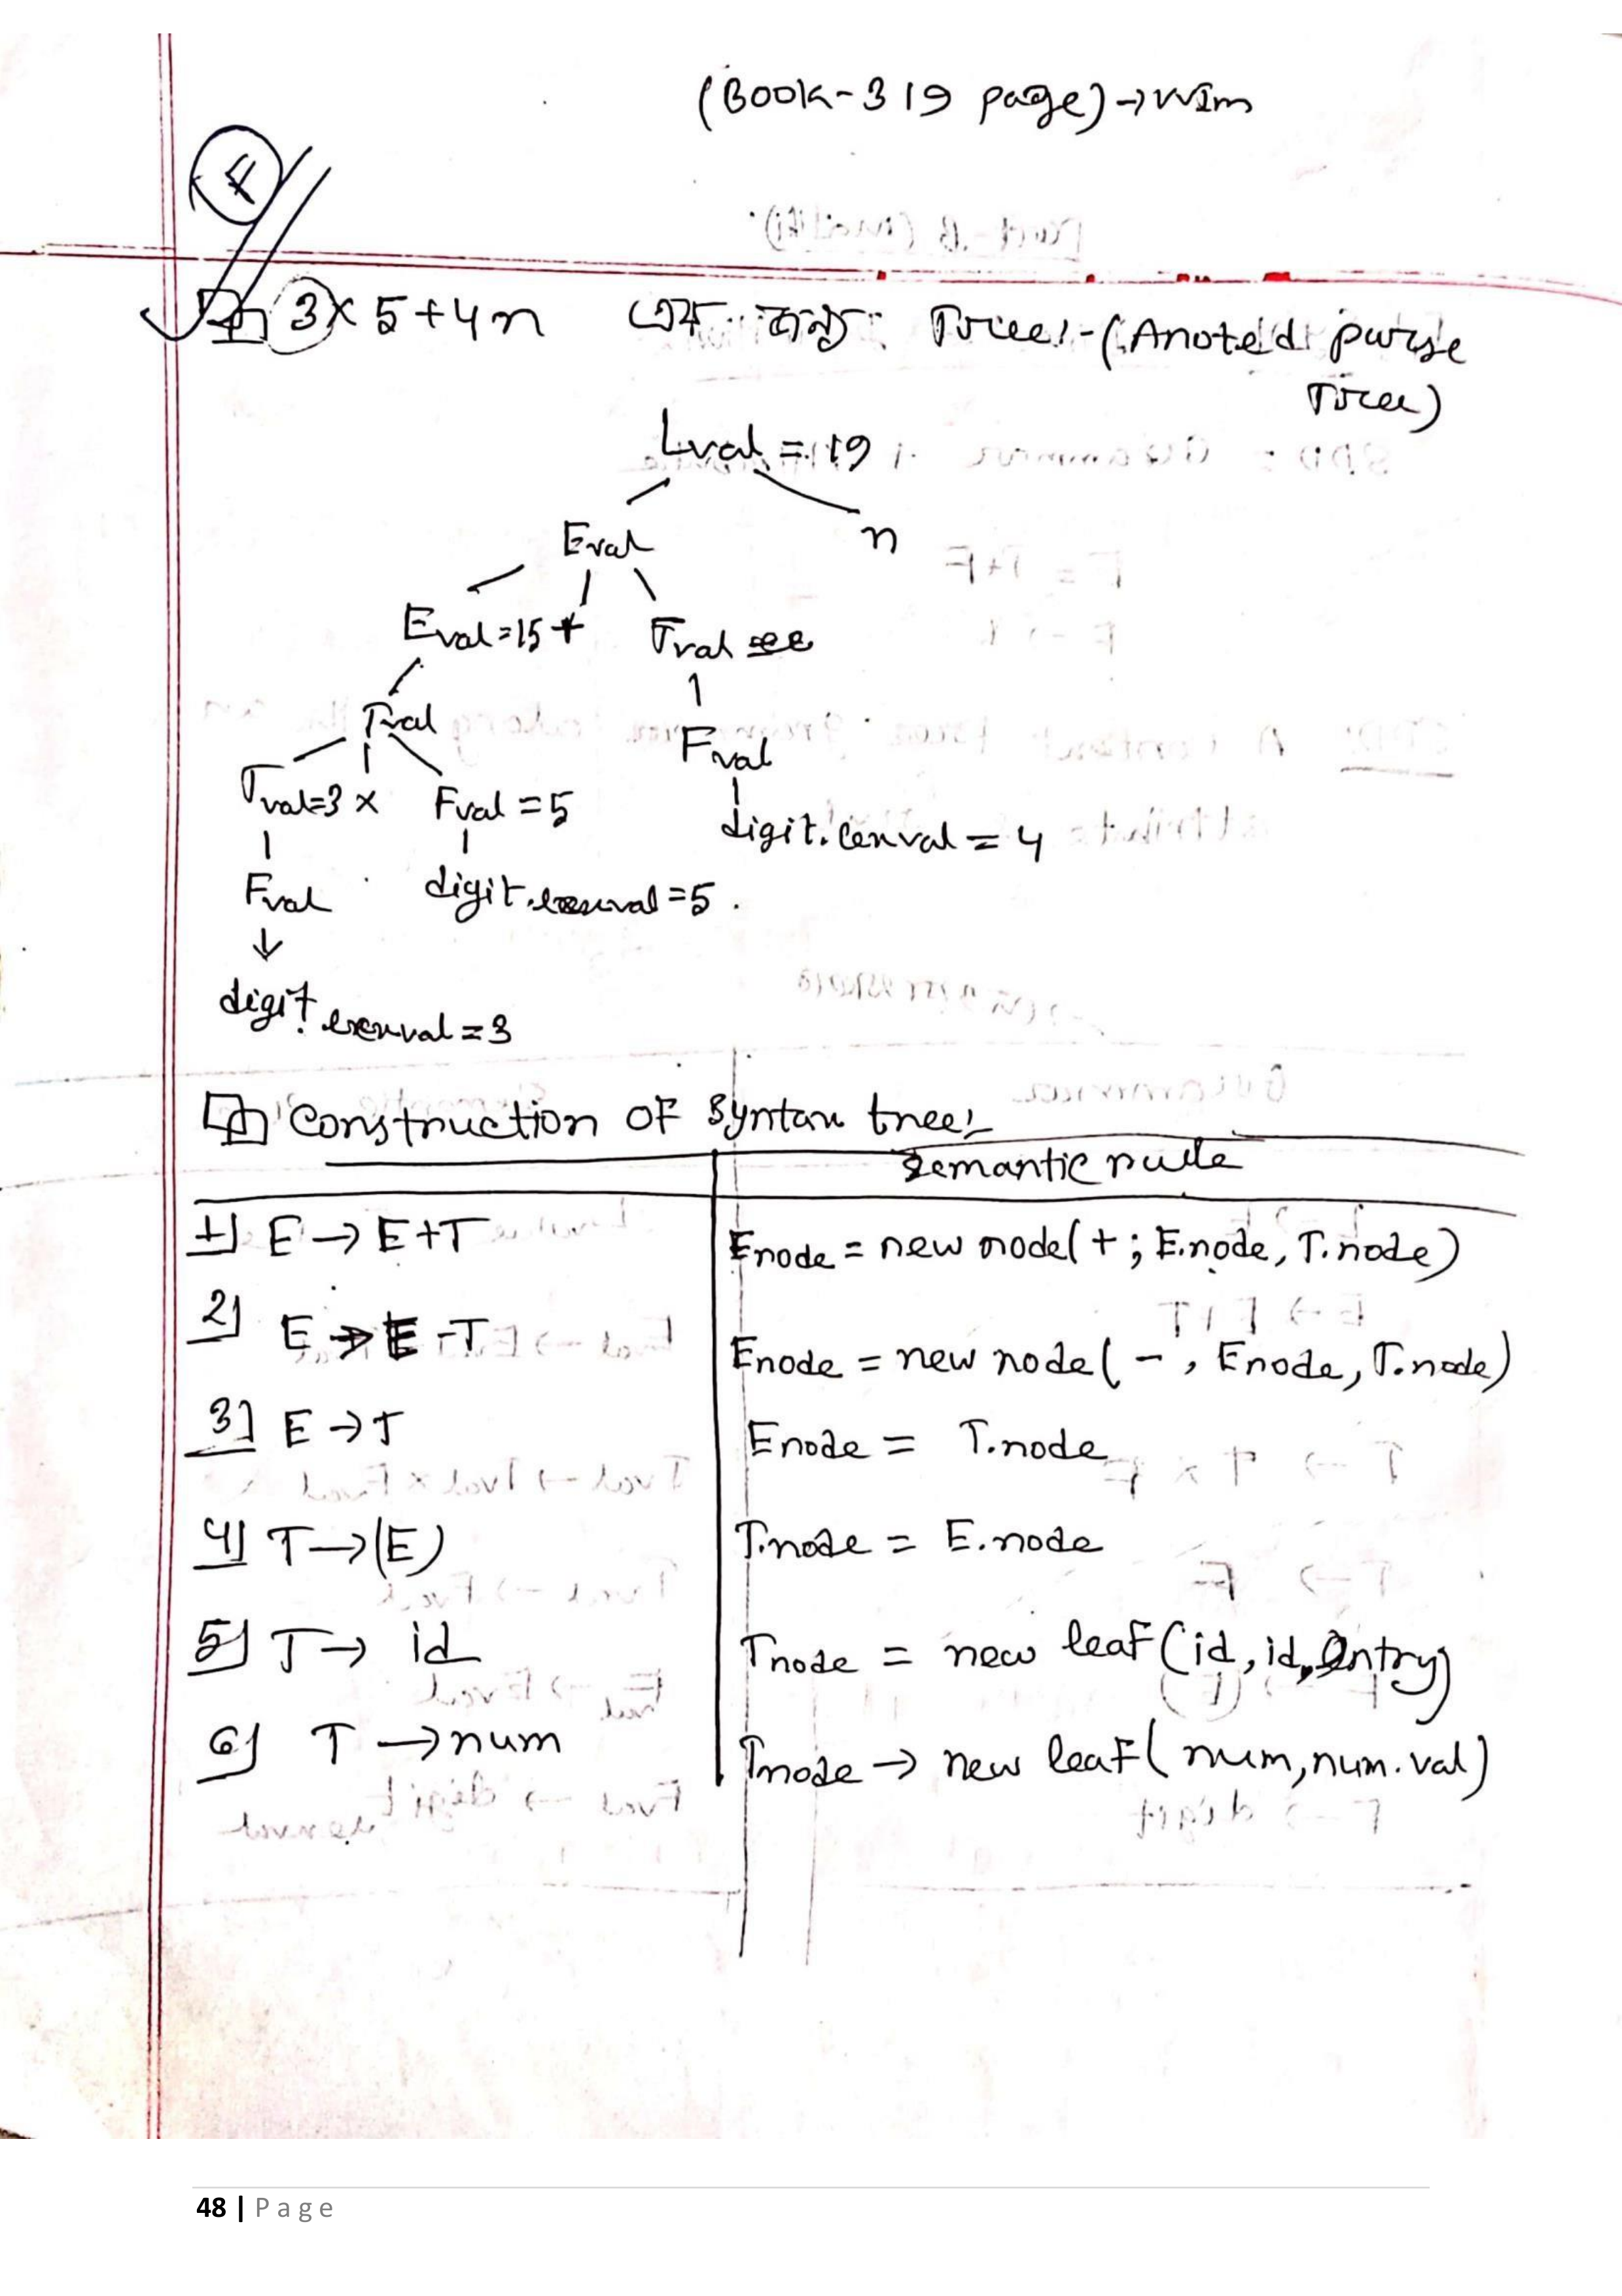 (Book-319 page)→VVIm
3×5+4n এর জন্য Tree:-(Anoted parse
Tree)
Lval = 19
Eval n
Eval=15 + Tval
Tval Fval
Tval=3 × Fval = 5 digit.lenval = 4
Fval digit.lexval=5.
digit.lexval=3
Construction of Syntax tree:
Semantic rule
1) E → E+T Enode = new node(+; E.node, T.node)
2) E → E -T Enode = new node(-, Enode, T.node)
3) E →T Enode = T.node
4) T→(E) T.node = E.node
5) T→ id Tnode = new leaf(id, id, Entry)
6) T →num Tnode → new leaf(num,num.val)
48 | Page